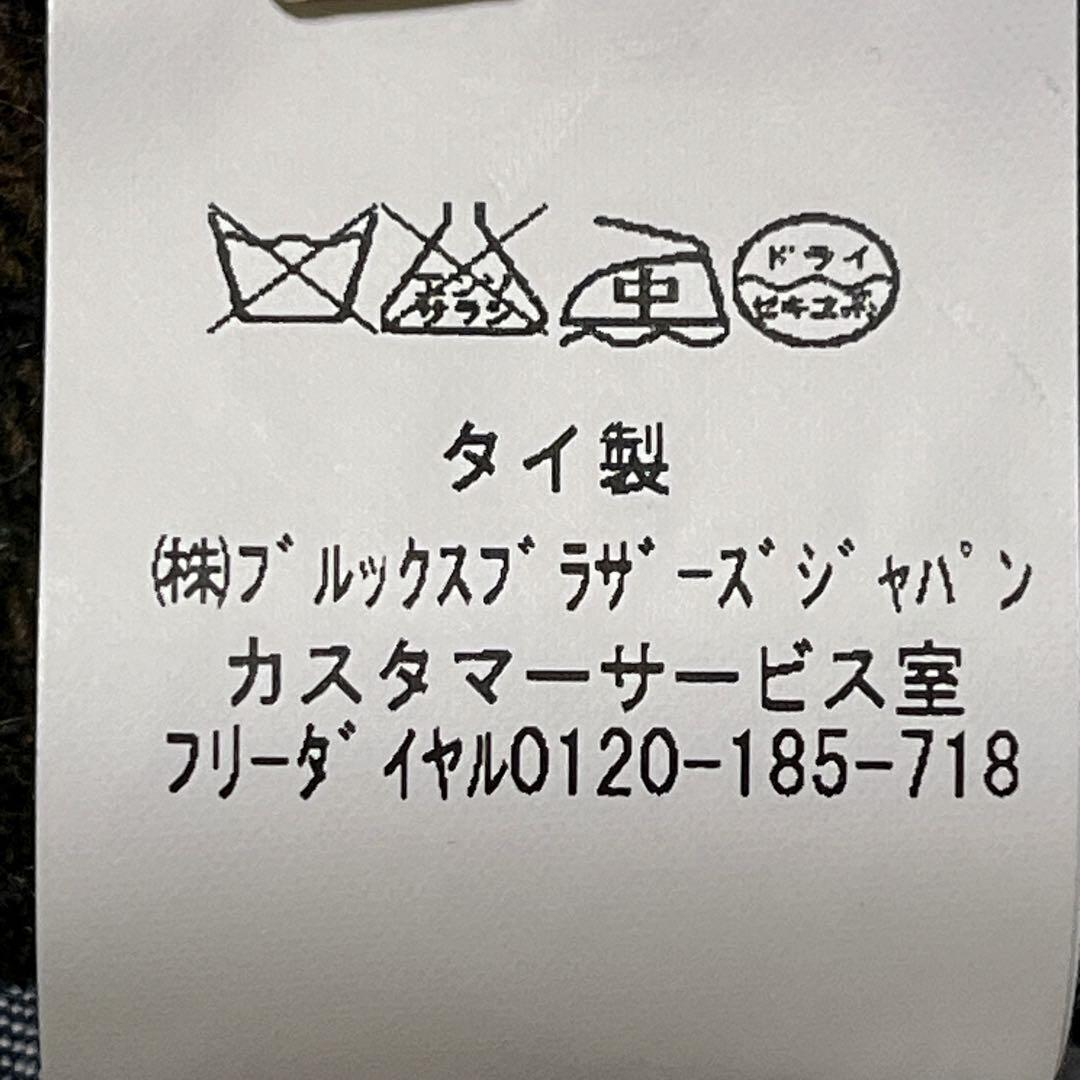 エンソ
サラシ
中
ドライ
セキユ系
タイ製
㈱ブルックスブラザーズジャパン
カスタマーサービス室
フリーダイヤル0120-185-718